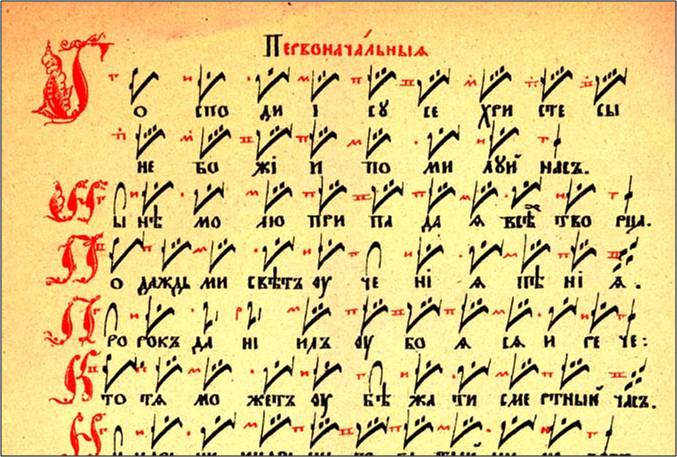 Первонача́льныя
Го спо ди і су се хри сте сы
не бо жі и по ми луй насъ.
Ны нѣ мо лю при па да я всѣ тво рца.
По даждь ми свѣтъ оу че ні я пѣ ні я.
Про рокъ да ні илъ оу бо я ся и ре че:
Кто тя мо жетъ оу бѣ жа ти сме ртный часъ.